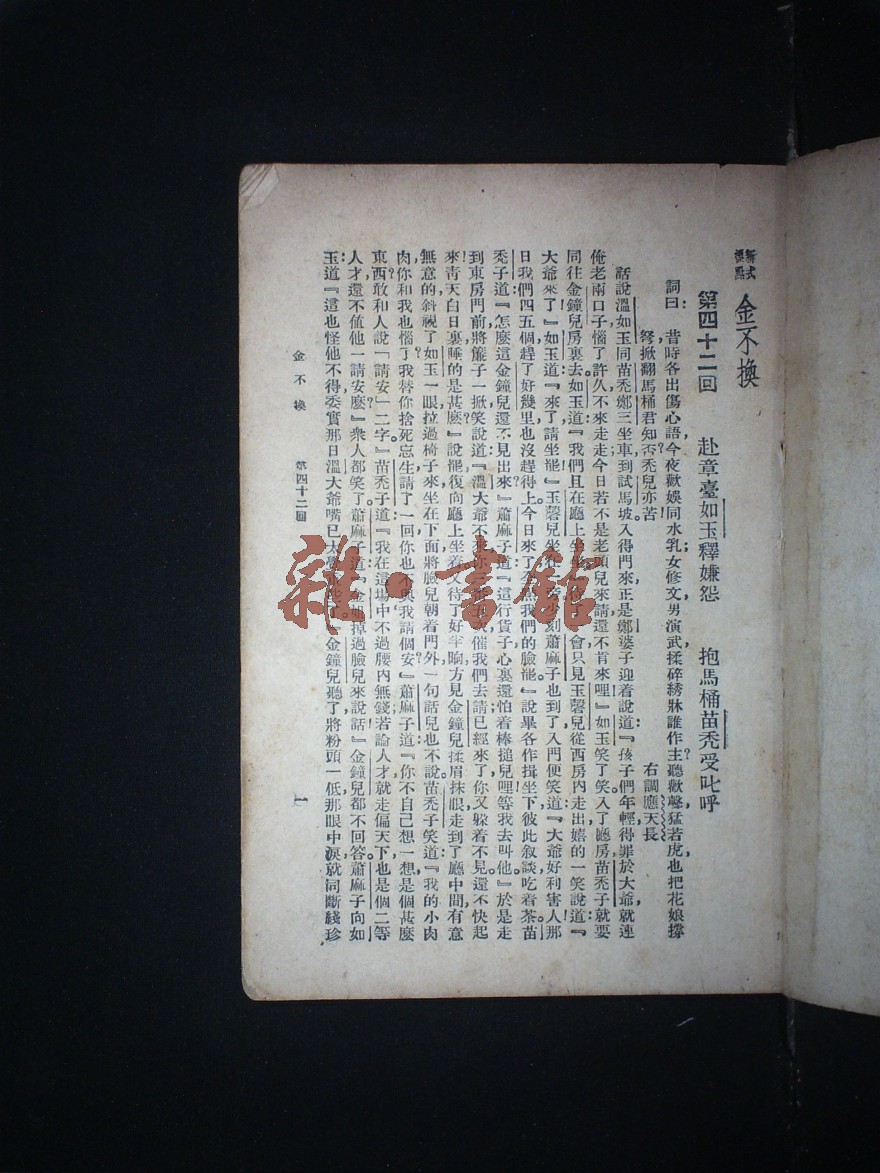 新式標點 金不換
第四十二回 赴章臺如玉釋嫌怨 抱馬桶苗禿受叱呼
詞曰：昔時各出傷心語，今夜歡娛同水乳；女修文，男演武，揉碎綉牀誰作主？聽歡聲，猛若虎，也把花娘撐
弩，掀翻馬桶君知否？禿兒亦苦。 右調應天長
話說溫如玉同苗禿、鄭三坐車到試馬坡，入得門來，正是鄭婆子迎着說道：『孩子們年輕，得罪於大爺，就連
俺老兩口子惱了，許久不來走走；今日若不是老頭兒來請，還不肯來哩！』如玉笑了笑，入了廳房，苗禿子就要
同往金鐘兒房裏去，如玉道：『我們且在廳上坐坐。』會只見玉馨兒從西房內走出，嬉的一笑，說道：『
大爺來了！』如玉道：『來了，請坐罷。』玉馨兒坐在 少刻，蕭麻子也到了，入門便笑道：『大爺好利害人，那
日我們四五個趕了好幾里，也沒趕得上；今日來了， 我們的臉罷。』說畢，各作揖坐下，彼此叙談吃着茶，苗
禿子道：『怎麼這金鐘兒還不見出來？』蕭麻子道：『這行貨子心裏還怕着棒搥兒哩！等我去叫他。』於是走
到東房門前，將簾子一掀，笑說道：『溫大爺不來，你 催我們去請；已經來了，你又躲着不見，還不快起
來！青天白日裏，睡的是甚麼？』說罷，復向廳上坐着；又待了好半晌，方見金鐘兒揉眉抹眼，走到了廳中間，有意
無意的斜視了如玉一眼，拉過椅子來，坐在下面，將臉兒朝着門外，一句話兒也不說；苗禿子笑道：『我的小肉
肉，你和我也惱了？我替你捨死忘生，請了一回，你也不與我請個安？』蕭麻子道：『你不自己想一想，是個甚麼
東西？敢和人說「請安」二字。』苗禿子道：『我在這場中，不過腰內無錢；若論人才，就走偏天下，也是個二等
人才，還不值他一請安麼？』衆人都笑了。蕭麻子道：『金姐掉過臉兒來說話！』金鐘兒都不回答。蕭麻子向如
玉道：『這也怪他不得，委實那日溫大爺嘴巴太 』金鐘兒聽了，將粉頭一低，那眼中淚就同斷綫珍
金不換 第四十二回 一
雜·書館